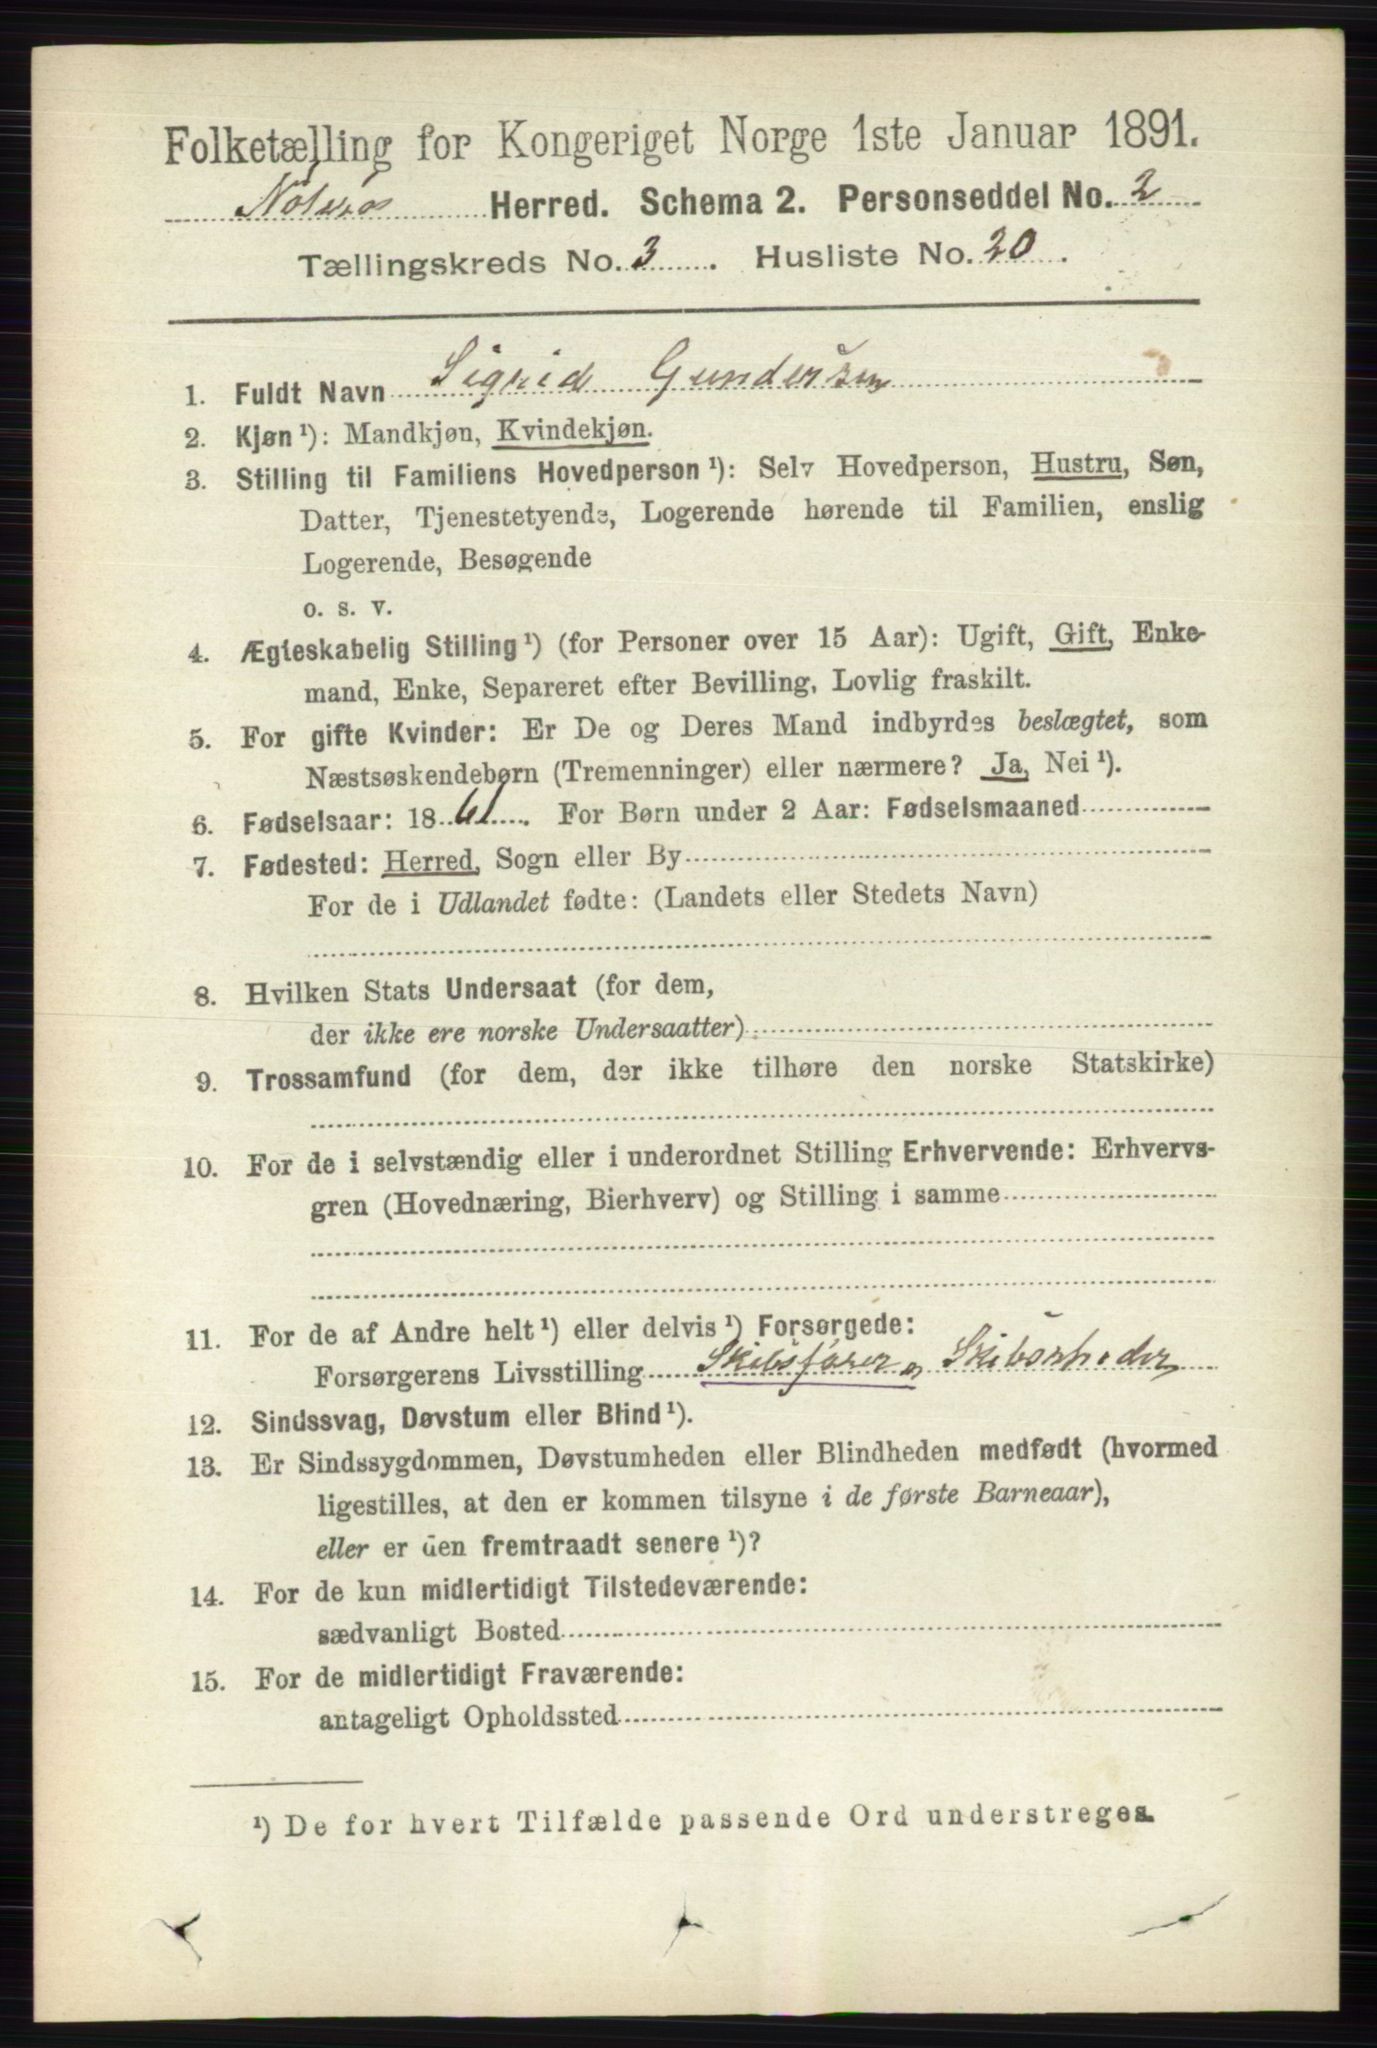 Folketælling for Kongeriget Norge 1ste Januar 1891.
Nøterø Herred. Schema 2. Personseddel No. 2
Tællingskreds No. 3. Husliste No. 20.
1. Fuldt Navn Sigrid Gundersen
2. Kjøn ¹): Mandkjøn, Kvindekjøn.
3. Stilling til Familiens Hovedperson ¹): Selv Hovedperson, Hustru, Søn,
Datter, Tjenestetyende, Logerende hørende til Familien, enslig
Logerende, Besøgende
o. s. v.
4. Ægteskabelig Stilling ¹) (for Personer over 15 Aar): Ugift, Gift, Enke-
mand, Enke, Separeret efter Bevilling, Lovlig fraskilt.
5. For gifte Kvinder: Er De og Deres Mand indbyrdes beslægtet, som
Næstsøskendebørn (Tremenninger) eller nærmere? Ja, Nei ¹).
6. Fødselsaar: 1861. For Børn under 2 Aar: Fødselsmaaned
7. Fødested: Herred, Sogn eller By
For de i Udlandet fødte: (Landets eller Stedets Navn)
8. Hvilken Stats Undersaat (for dem,
der ikke ere norske Undersaatter)
9. Trossamfund (for dem, der ikke tilhøre den norske Statskirke)
10. For de i selvstændig eller i underordnet Stilling Erhvervende: Erhvervs-
gren (Hovednæring, Bierhverv) og Stilling i samme
11. For de af Andre helt ¹) eller delvis ¹) Forsørgede:
Forsørgerens Livsstilling Skibsfører Skibsrheder
12. Sindssvag, Døvstum eller Blind ¹).
13. Er Sindssygdommen, Døvstumheden eller Blindheden medfødt (hvormed
ligestilles, at den er kommen tilsyne i de første Barneaar),
eller er den fremtraadt senere ¹)?
14. For de kun midlertidigt Tilstedeværende:
sædvanligt Bosted
15. For de midlertidigt Fraværende:
antageligt Opholdssted
¹) De for hvert Tilfælde passende Ord understreges.